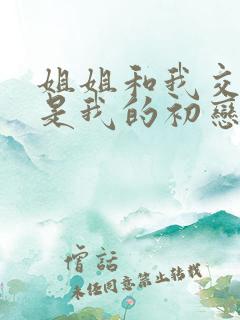 姐姐和我交
是我的初戀
僧話
未經同意禁止轉載